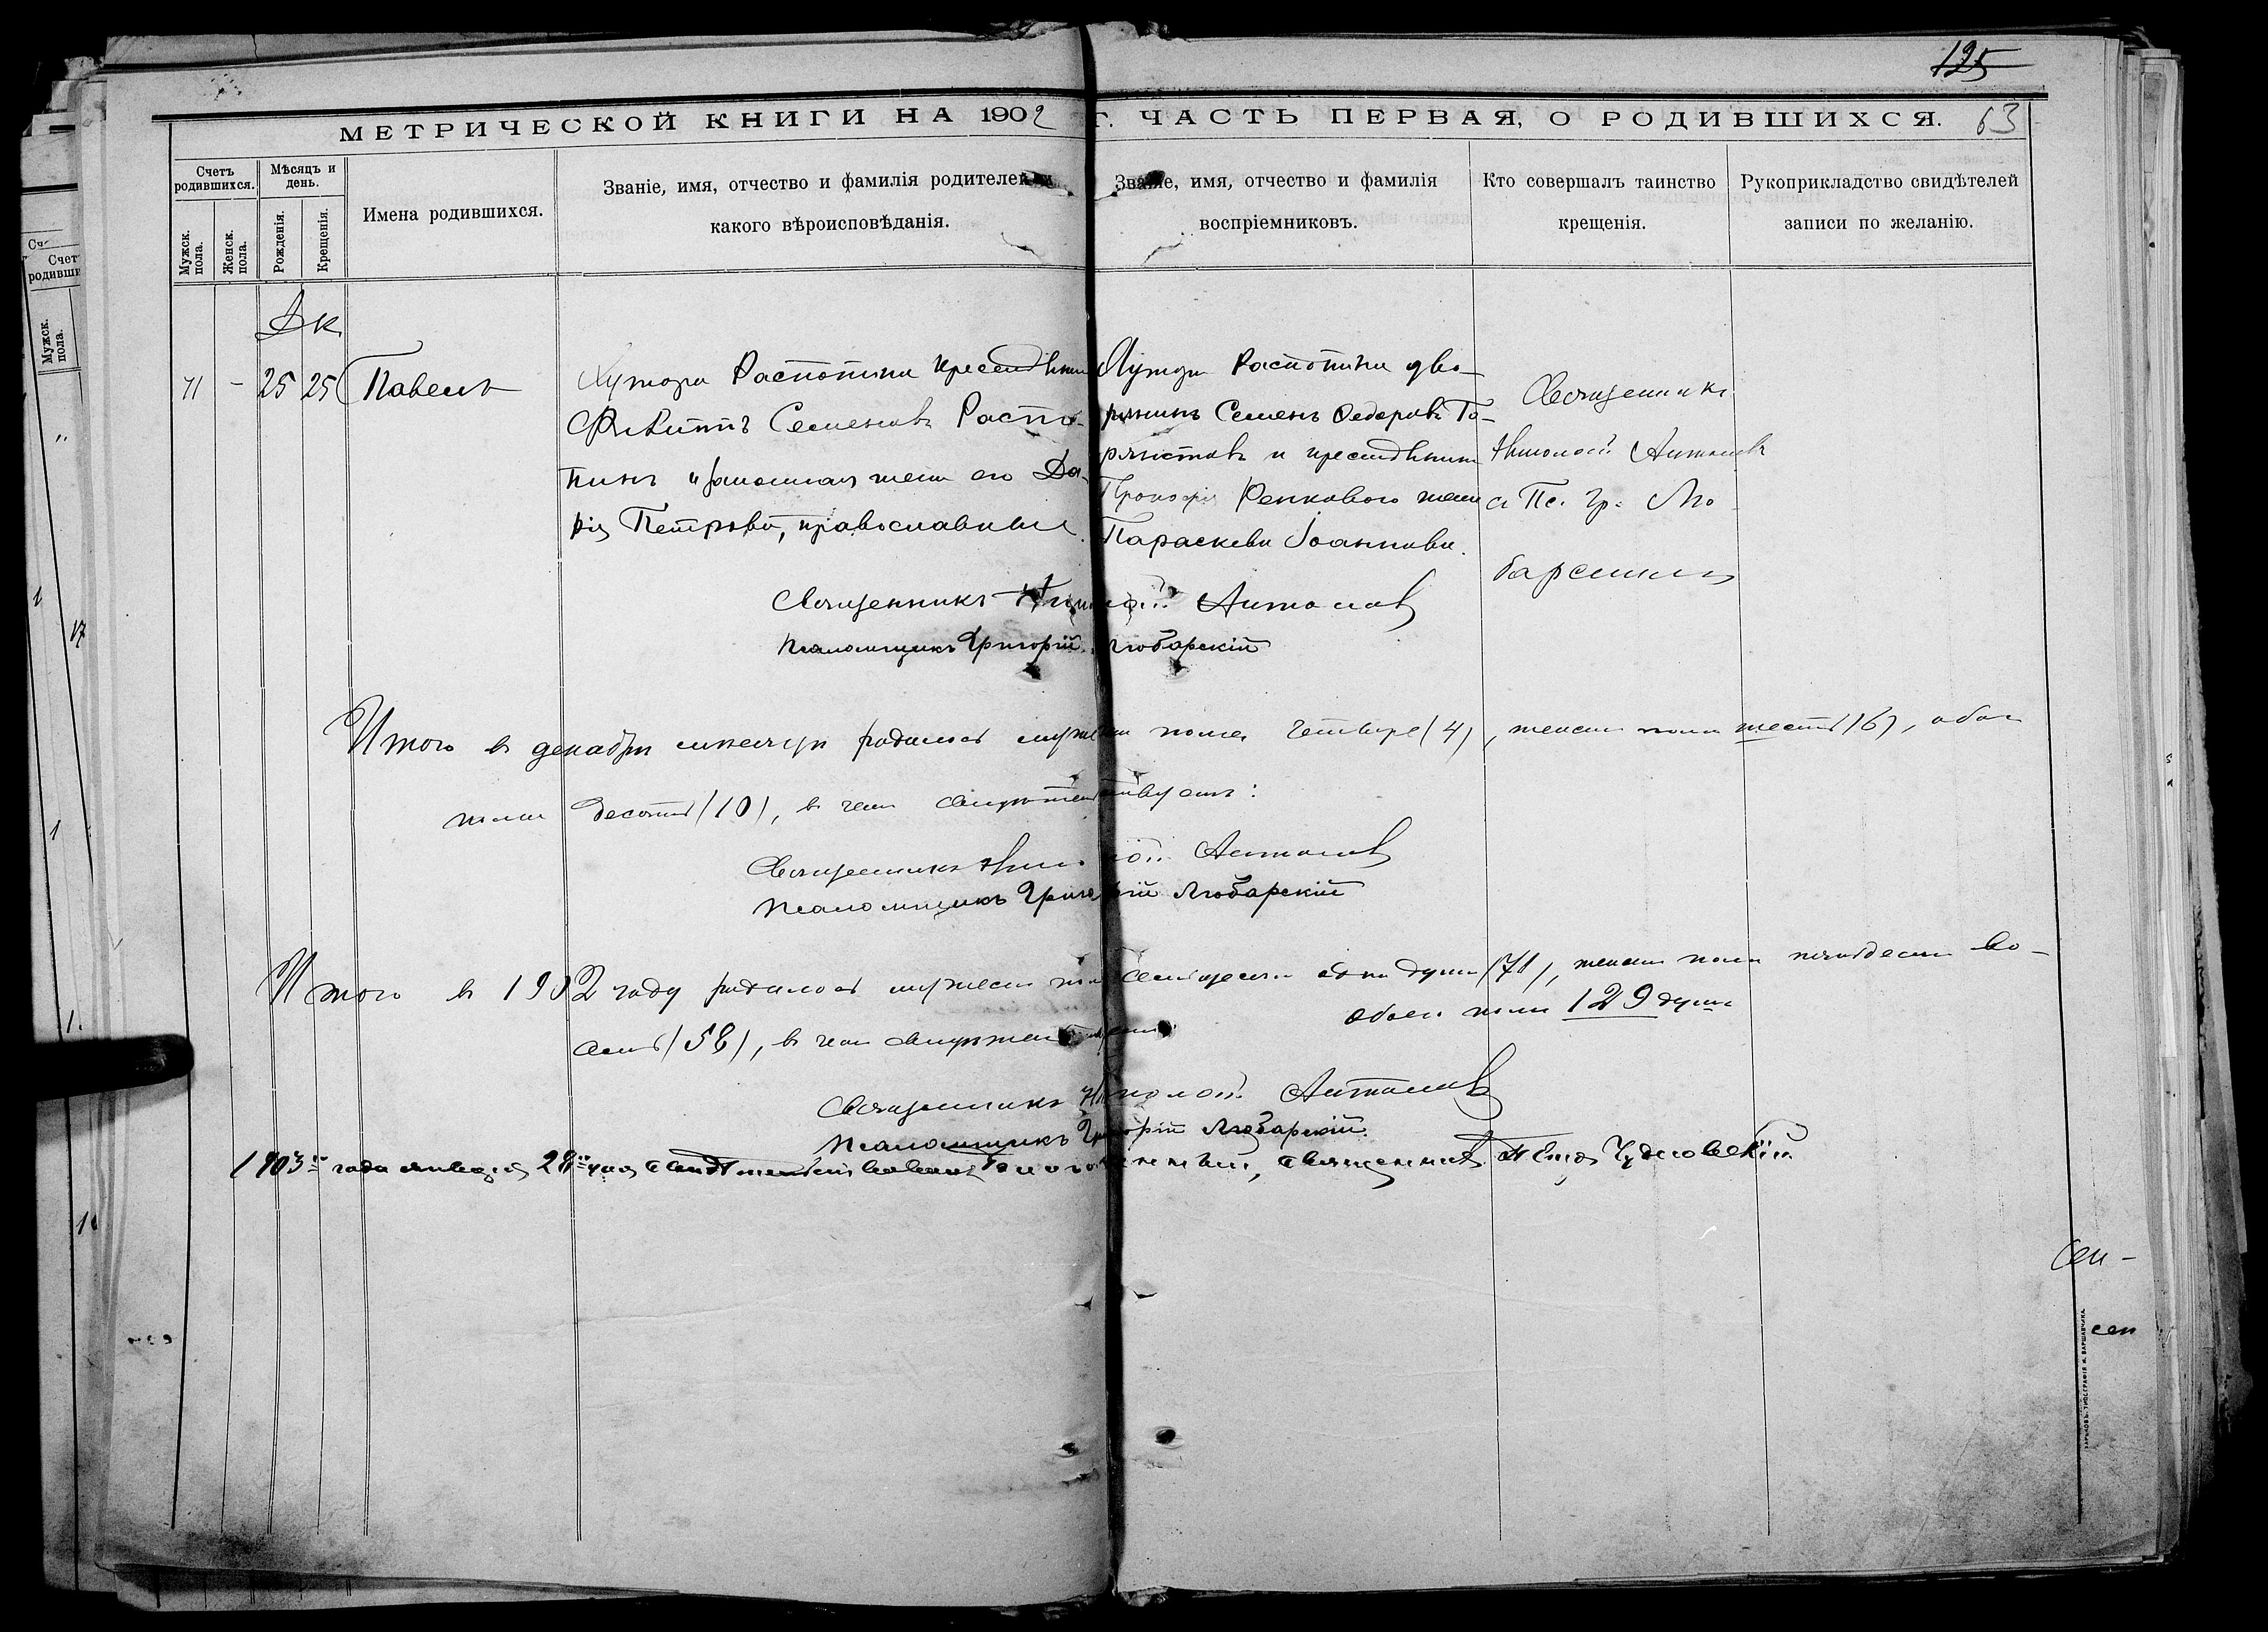 125
МЕТРИЧЕСКОЙ КНИГИ НА 1902 Г. ЧАСТЬ ПЕРВАЯ, О РОДИВШИХСЯ. 63
Счетъ родившихся.
Мужск. пола.
Женск. пола.
Мѣсяцъ и день.
Рожденія.
Крещенія.
Имена родившихся.
Званіе, имя, отчество и фамилія родителей и
какого вѣроисповѣданія.
Званіе, имя, отчество и фамилія
воспріемниковъ.
Кто совершалъ таинство
крещенія.
Рукоприкладство свидѣтелей
записи по желанію.
Дк
71 - 25 25 Павелъ
Хутора Распопина крестьянинъ
Семеновъ Распо-
пинъ и законная жена его Да-
рія Петрова, православные.
Хутора Распопина дво-
рянинъ Семенъ Федоровъ Го-
и крестьянина
Прокофія жена
Параскева Іоаннова.
Священникъ
Николай
съ Пс. Гр. Лю-
барскимъ
Священникъ Николай
Псаломщикъ Григорій Любарскій
Итого въ декабрѣ мѣсяцѣ родилось мужеска пола четыре (4), женска пола шесть (6), обоего
пола десять (10), въ чемъ свидѣтельствуемъ:
Священникъ Николай
Псаломщикъ Григорій Любарскій
Итого въ 1902 году родилось мужеска пола семьдесятъ одна душа (71), женска пола пятьдесятъ во-
семь (58), въ чемъ свидѣтельствуемъ: обоего пола 129 душъ
Священникъ Николай
Псаломщикъ Григорій Любарскій.
1903го года января 28го дня свидѣтельствовалъ Благочинный, священникъ Чудновскій
Сен -
сен